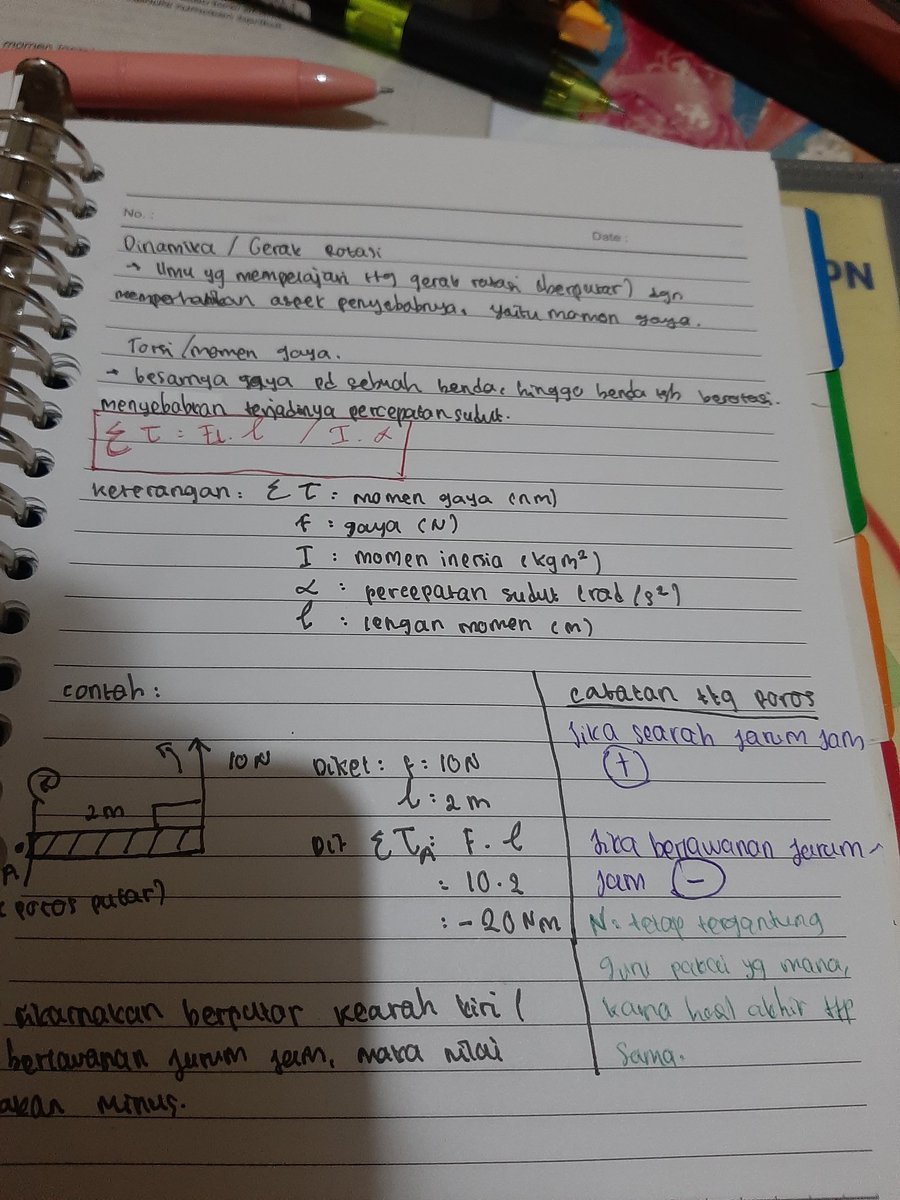 No. :
Date :
Dinamika / Gerak Rotasi
→ Ilmu yg mempelajari ttg gerak rotasi (berputar) dgn
memperhatikan aspek penyebabnya, yaitu momen gaya.
Torsi / momen gaya.
→ besarnya gaya pd sebuah benda, hingga benda tsb berotasi.
menyebabkan terjadinya percepatan sudut.
Σ τ : F. l / I. α
keterangan : Σ τ : momen gaya (nm)
f : gaya (N)
I : momen inersia (kgm²)
α : percepatan sudut (rad/s²)
l : lengan momen (m)
contoh :
10N
2m
A
(poros putar)
Diket : f : 10N
l : 2m
Dit Σ τA : F. l
: 10.2
: -20 Nm
dikarnakan berputar kearah kiri (
berlawanan jarum jam, maka nilai
akan minus.
catatan ttg poros
Jika searah jarum jam
(+)
Jika berlawanan jarum
jam (-)
N: tetap tergantung
guru pakai yg mana,
karna hasil akhir ttp
sama.